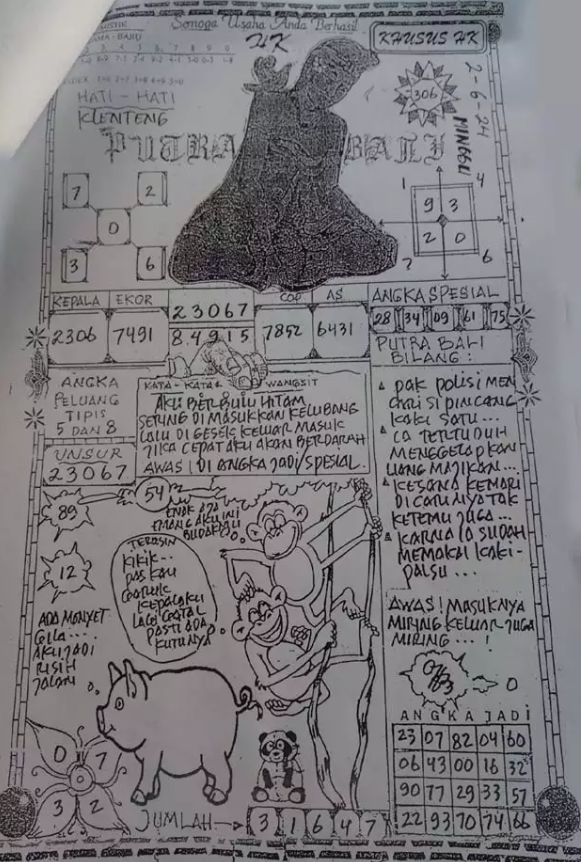 Semoga Usaha Anda Berhasil
HK
KHUSUS HK
306
2-6-24
MINGGU
HATI - HATI
KLENTENG
PUTRA BALI
7 2
0
3 6
1 4
9 3
2 0
7 6
KEPALA EKOR
2306 7491
23067
84915
COP AS
7852 6431
ANGKA SPESIAL
28 34 09 61 75
PUTRA BALI
BILANG :
PAK POLISI MEN
CARI SI PINCANG
KAKI SATU...
IA TERTUDUH
MENGGELAPKAN
UANG MAJIKAN...
KESANA KEMARI
DI CARI NYA TOK
KETEMU JUGA...
KARNA IA SUDAH
MEMAKAI KAKI-
PALSU...
AWAS! MASUKNYA
MIRING KELUAR JUGA
MIRING... !
ANGKA
PELUANG
TIPIS
5 DAN 8
UNSUR
23067
KATA - KATA WANGSIT
AKU BERBULU HITAM
SERING DI MASUKKAN KELUBANG
LALU DI GESEK KELUAR MASUK
JIKA CEPAT AKU AKAN BERDARAH
AWAS! DI ANGKA JADI/SPESIAL.
89
54
12
ENAK AJA
EMANG AKU INI
TERASIN
KIKIK...
PAS KAU
GARUK
KEPALAKU
LAGI GATAL
PASTI ADA
KUTUNYA
ADA MONYET
GILA....
AKU JADI
RISIH
0 7
0
3 2
0
ANGKA JADI
23 07 82 04 60
06 43 00 16 32
90 77 29 33 57
22 93 70 74 66
JUMLAH → 3 1 6 4 7